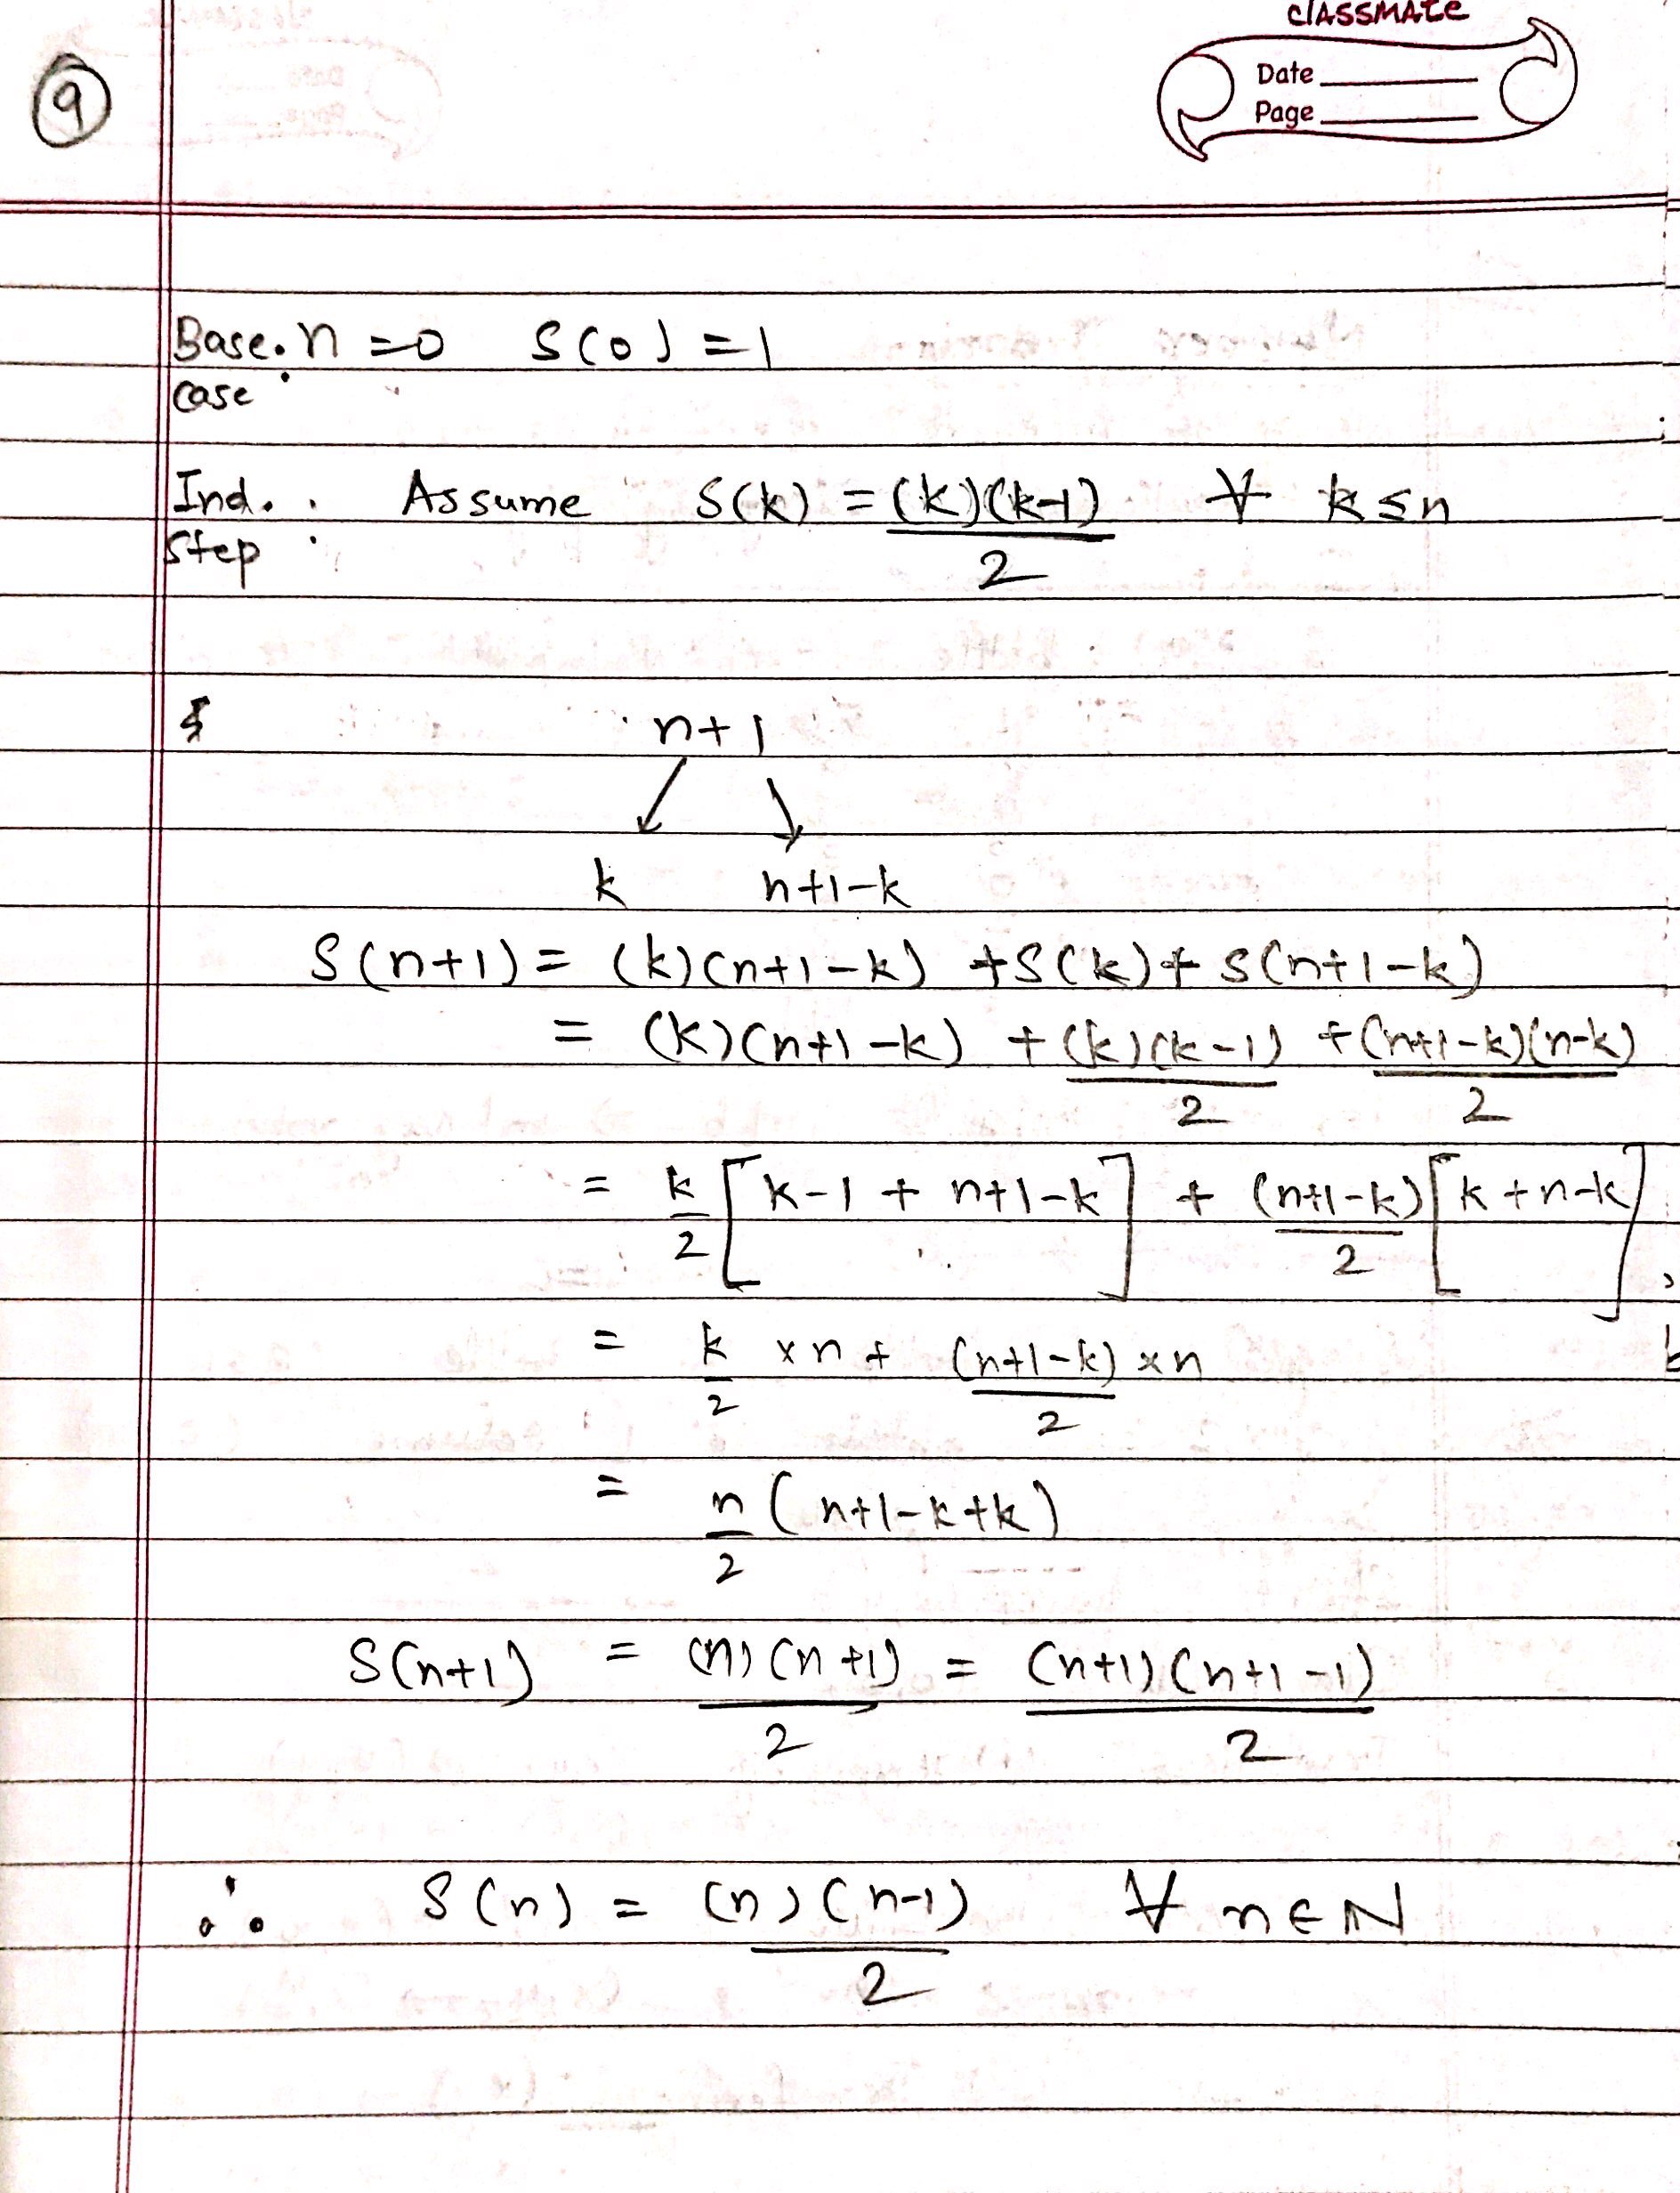 classmate
Date
Page
9
Base case : n = 0 S(0) = 1
Ind. Step : Assume S(k) = (k)(k-1)/2 ∀ k ≤ n
n+1
↙ ↘
k n+1-k
S(n+1) = (k)(n+1-k) + S(k) + S(n+1-k)
= (k)(n+1-k) + (k)(k-1)/2 + (n+1-k)(n-k)/2
= k/2 [k-1 + n+1-k] + (n+1-k)/2 [k+n-k]
= k/2 × n + (n+1-k)/2 × n
= n/2 (n+1-k+k)
S(n+1) = (n)(n+1)/2 = (n+1)(n+1-1)/2
∴ S(n) = (n)(n-1)/2 ∀ n∈N